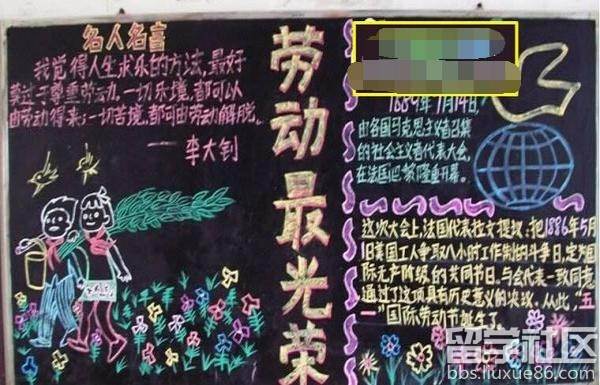 名人名言
我觉得人生求乐的方法,最好
莫过于尊重劳动。一切乐境,都可以
由劳动得来;一切苦境,都可由劳动解脱。
——李大钊
劳动最光荣
1889年7月14日,
由各国马克思主义者召集
的社会主义者代表大会,
在法国巴黎隆重开幕。
这次大会上,法国代表拉文提议:把1886年5月
1日美国工人争取八小时工作制的斗争日,定为国
际无产阶级的共同节日。与会代表一致同意
通过了这项具有历史意义的决议。从此,“五
一”国际劳动节诞生了。
留学社区
bbs.liuxue86.com